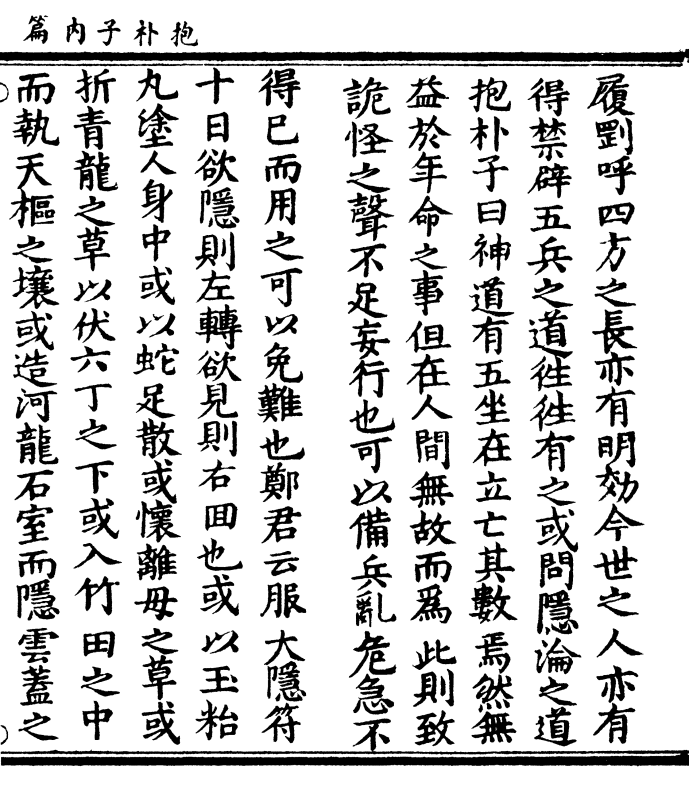 抱朴子內篇
履剛呼四方之長亦有明効今世之人亦有
得禁辟五兵之道徃徃有之或問隱淪之道
抱朴子曰神道有五坐在立亡其數焉然無
益於年命之事但在人間無故而爲此則致
詭怪之聲不足妄行也可以備兵亂危急不
得已而用之可以免難也鄭君云服大隱符
十日欲隱則左轉欲見則右囬也或以玉粘
丸塗人身中或以蛇足散或懷離母之草或
折青龍之草以伏六丁之下或入竹田之中
而執天樞之壤或造河龍石室而隱雲蓋之